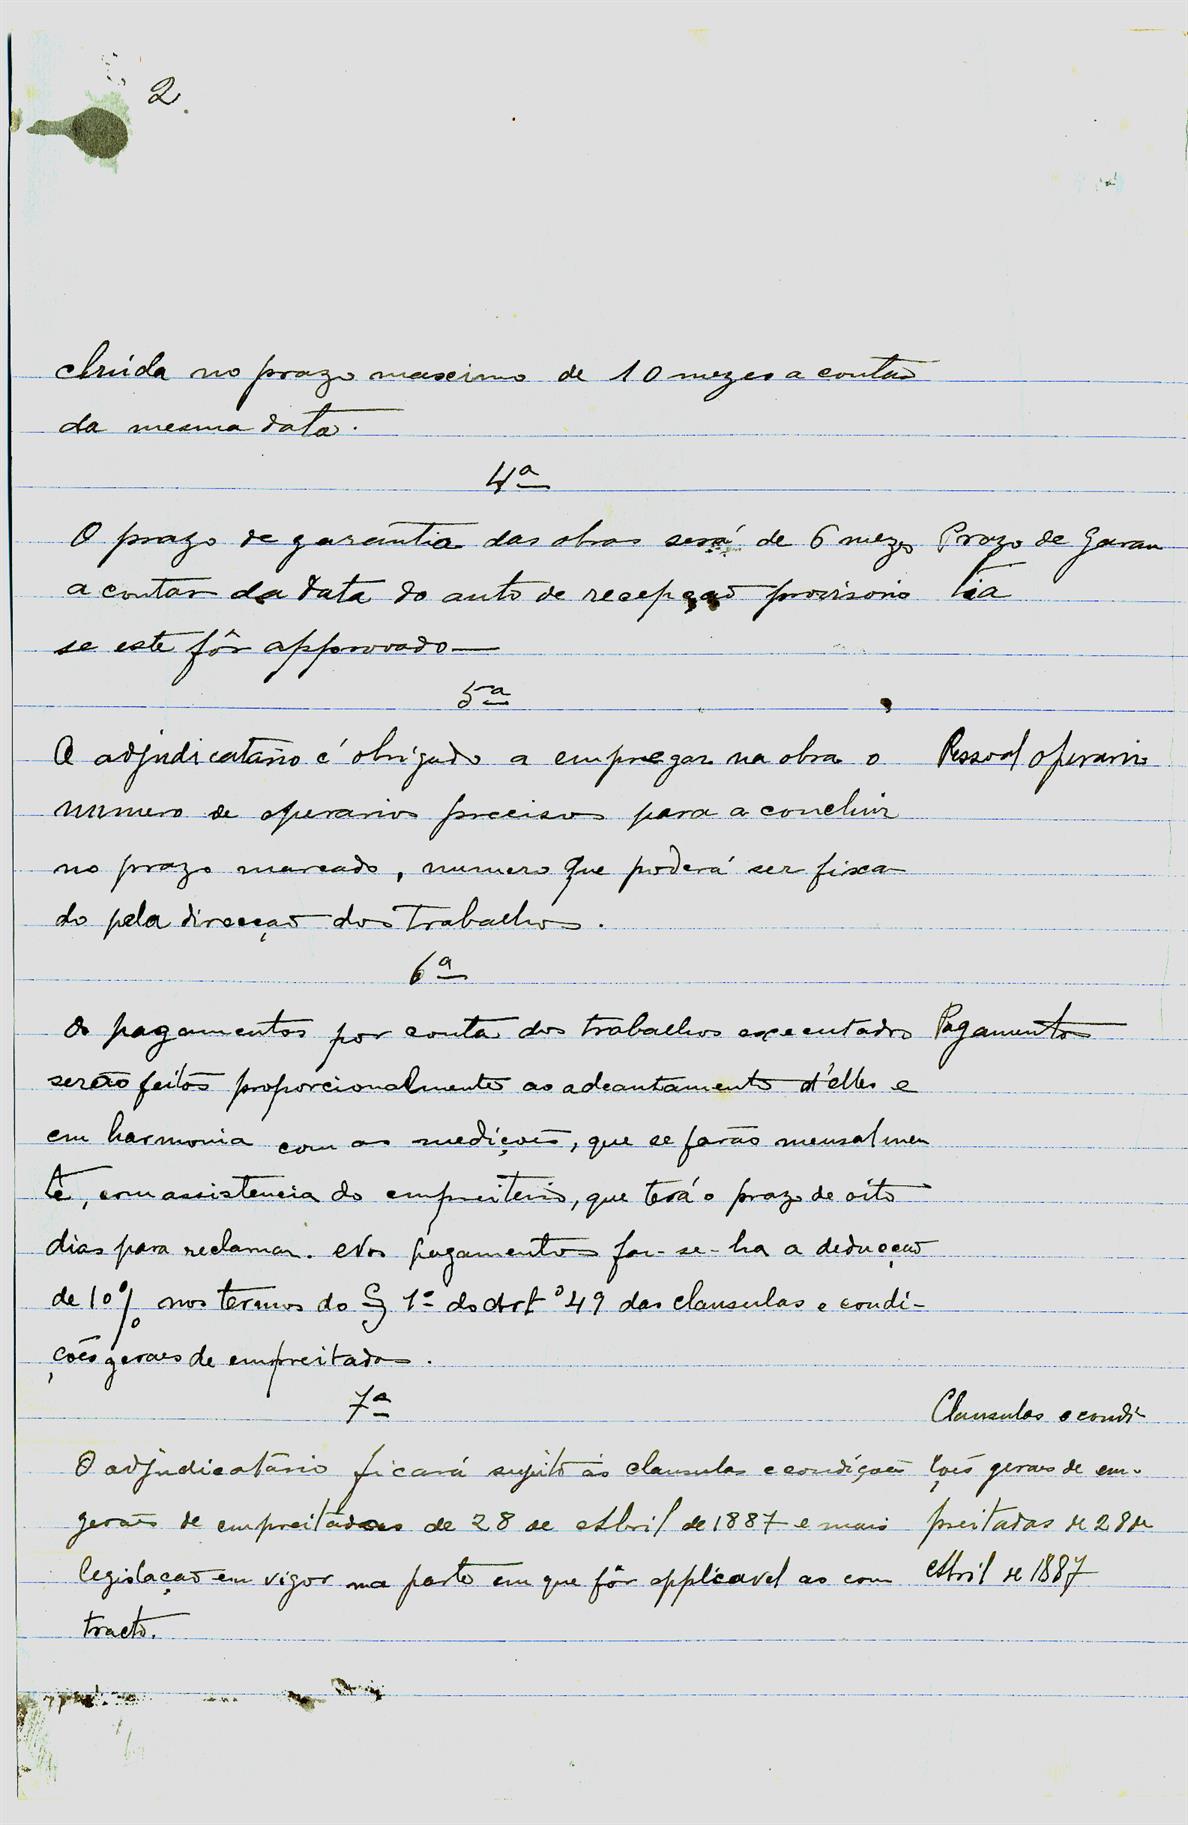 2
cluida no prazo maximo de 10 mezes a contar
da mesma data.
4ª
O prazo de garantia das obras será de 6 mezes
a contar da data do auto de recepção provisorio
se este fôr approvado—
Prazo de Garan
tia
5ª
O adjudicatario é obrigado a empregar na obra o
numero de operarios precisos para a concluir
no prazo marcado, numero que poderá ser fixa
do pela direcção dos trabalhos.
Pessoal operario
6ª
Os pagamentos por conta dos trabalhos executados
serão feitos proporcionalmente ao adeantamento d'elles e
em harmonia com as medições, que se farão mensalmen
te, com assistencia do empreiteiro, que terá o prazo de oito
dias para reclamar. Nos pagamentos far-se-ha a deducção
de 10% nos termos do § 1º do Artº 49 das clausulas e condi-
ções geraes de empreitadas.
Pagamentos
7ª
O adjudicatário ficará sujeito ás clausulas e condições
geraes de empreitadas de 28 de Abril de 1887 e mais
legislação em vigor na parte em que fôr applicavel ao con
tracto.
Clausulas e condi
ções geraes de em-
preitadas de 28 de
Abril de 1887